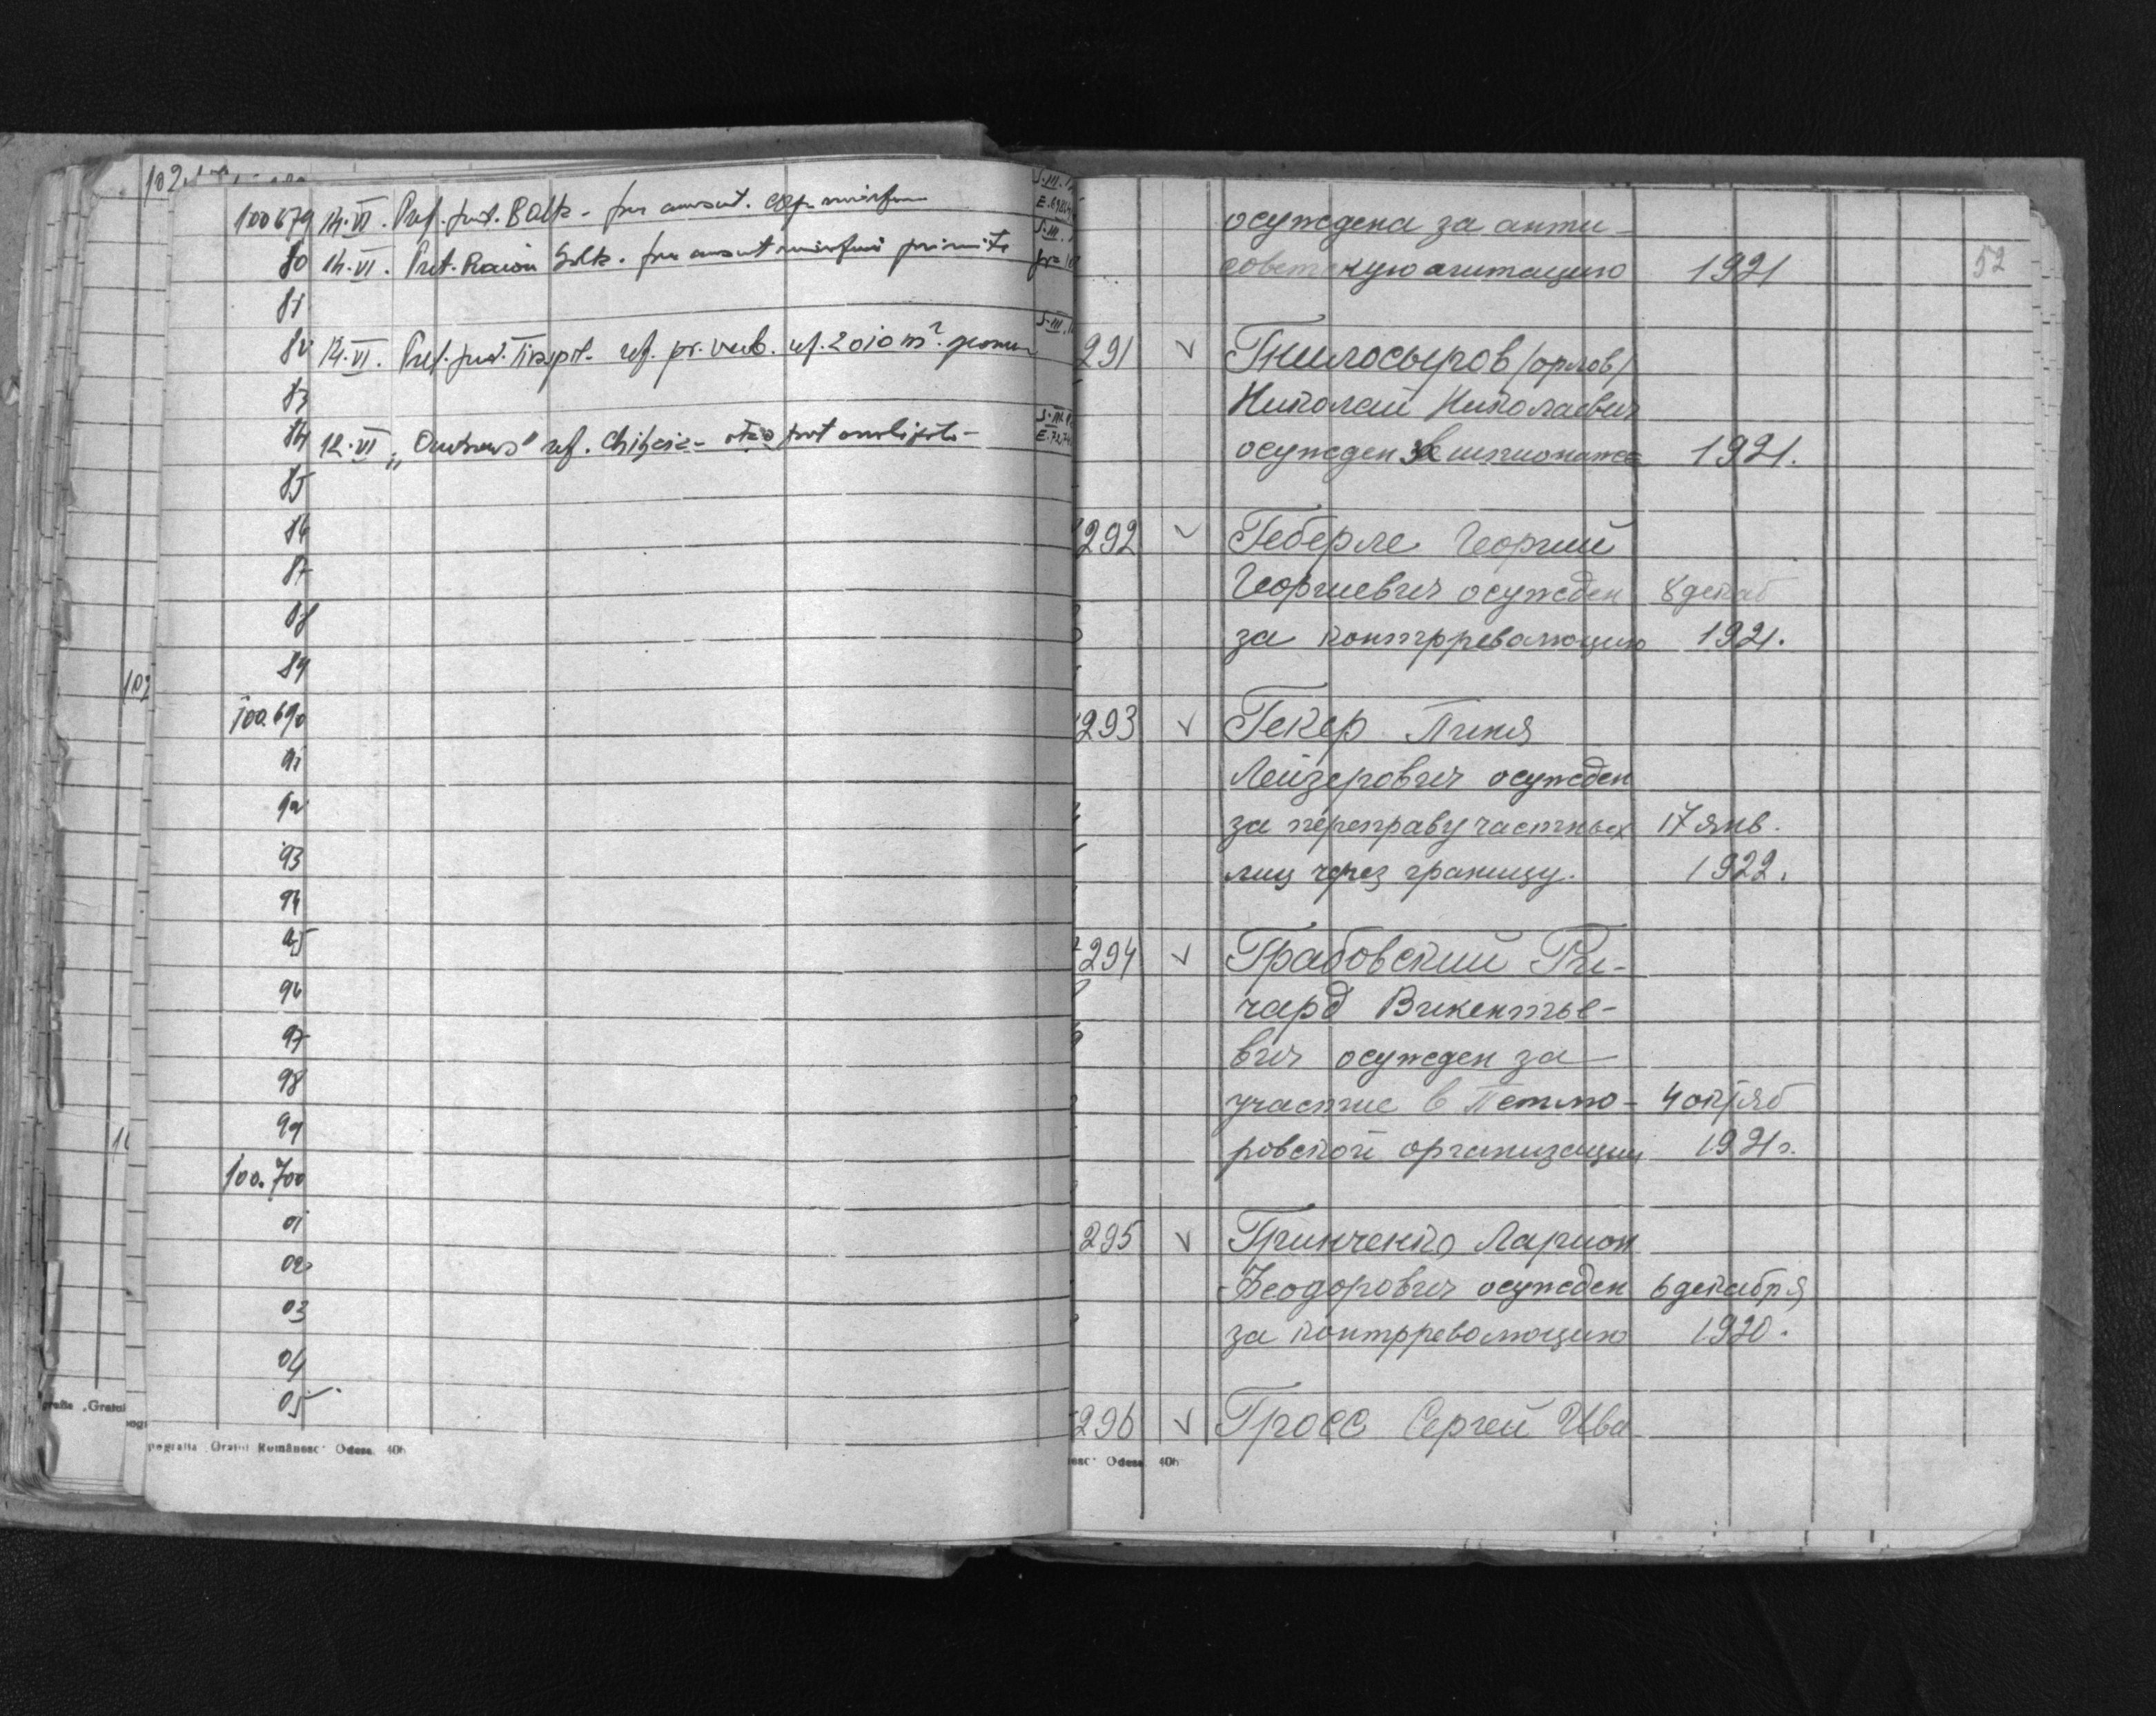 102
100679 14.VI. Pref. jud. Balta - 
80 14.VI. Pret. Raion Balta.
81
82 14.VI. Pref. jud. Tiraspol - ref. pr. verb. ref. 2010 m²
83
84 12.VI ref.
85
86
87
88
89
100.690
91
92
93
94
95
96
97
98
99
100.700
01
02
03
04
05
pografia „Graiul Românesc" Odesa 40h
102
осуждена за анти-
советскую агитацию 1921
52
291 v Гнилосыров /орлов/
Николай Николаевич
осужден за шпионаж 1921.
292 v Геберле Георгий
Георгиевич осужден 8 декаб
за контрреволюцию 1921.
293 v Гекер Пиня
Лейзерович осужден
за переправу частных 17 янв.
лиц через границу. 1922.
294 v Грабовский Ри-
чард Викентье-
вич осужден за
участие в Петлю- 4 октяб
ровской организации 1921 г.
295 v Гринченко Ларион
Феодорович осужден 6 декабря
за контрреволюцию 1920.
296 v Гросс Сергей Ива
esc" Odesa 40h